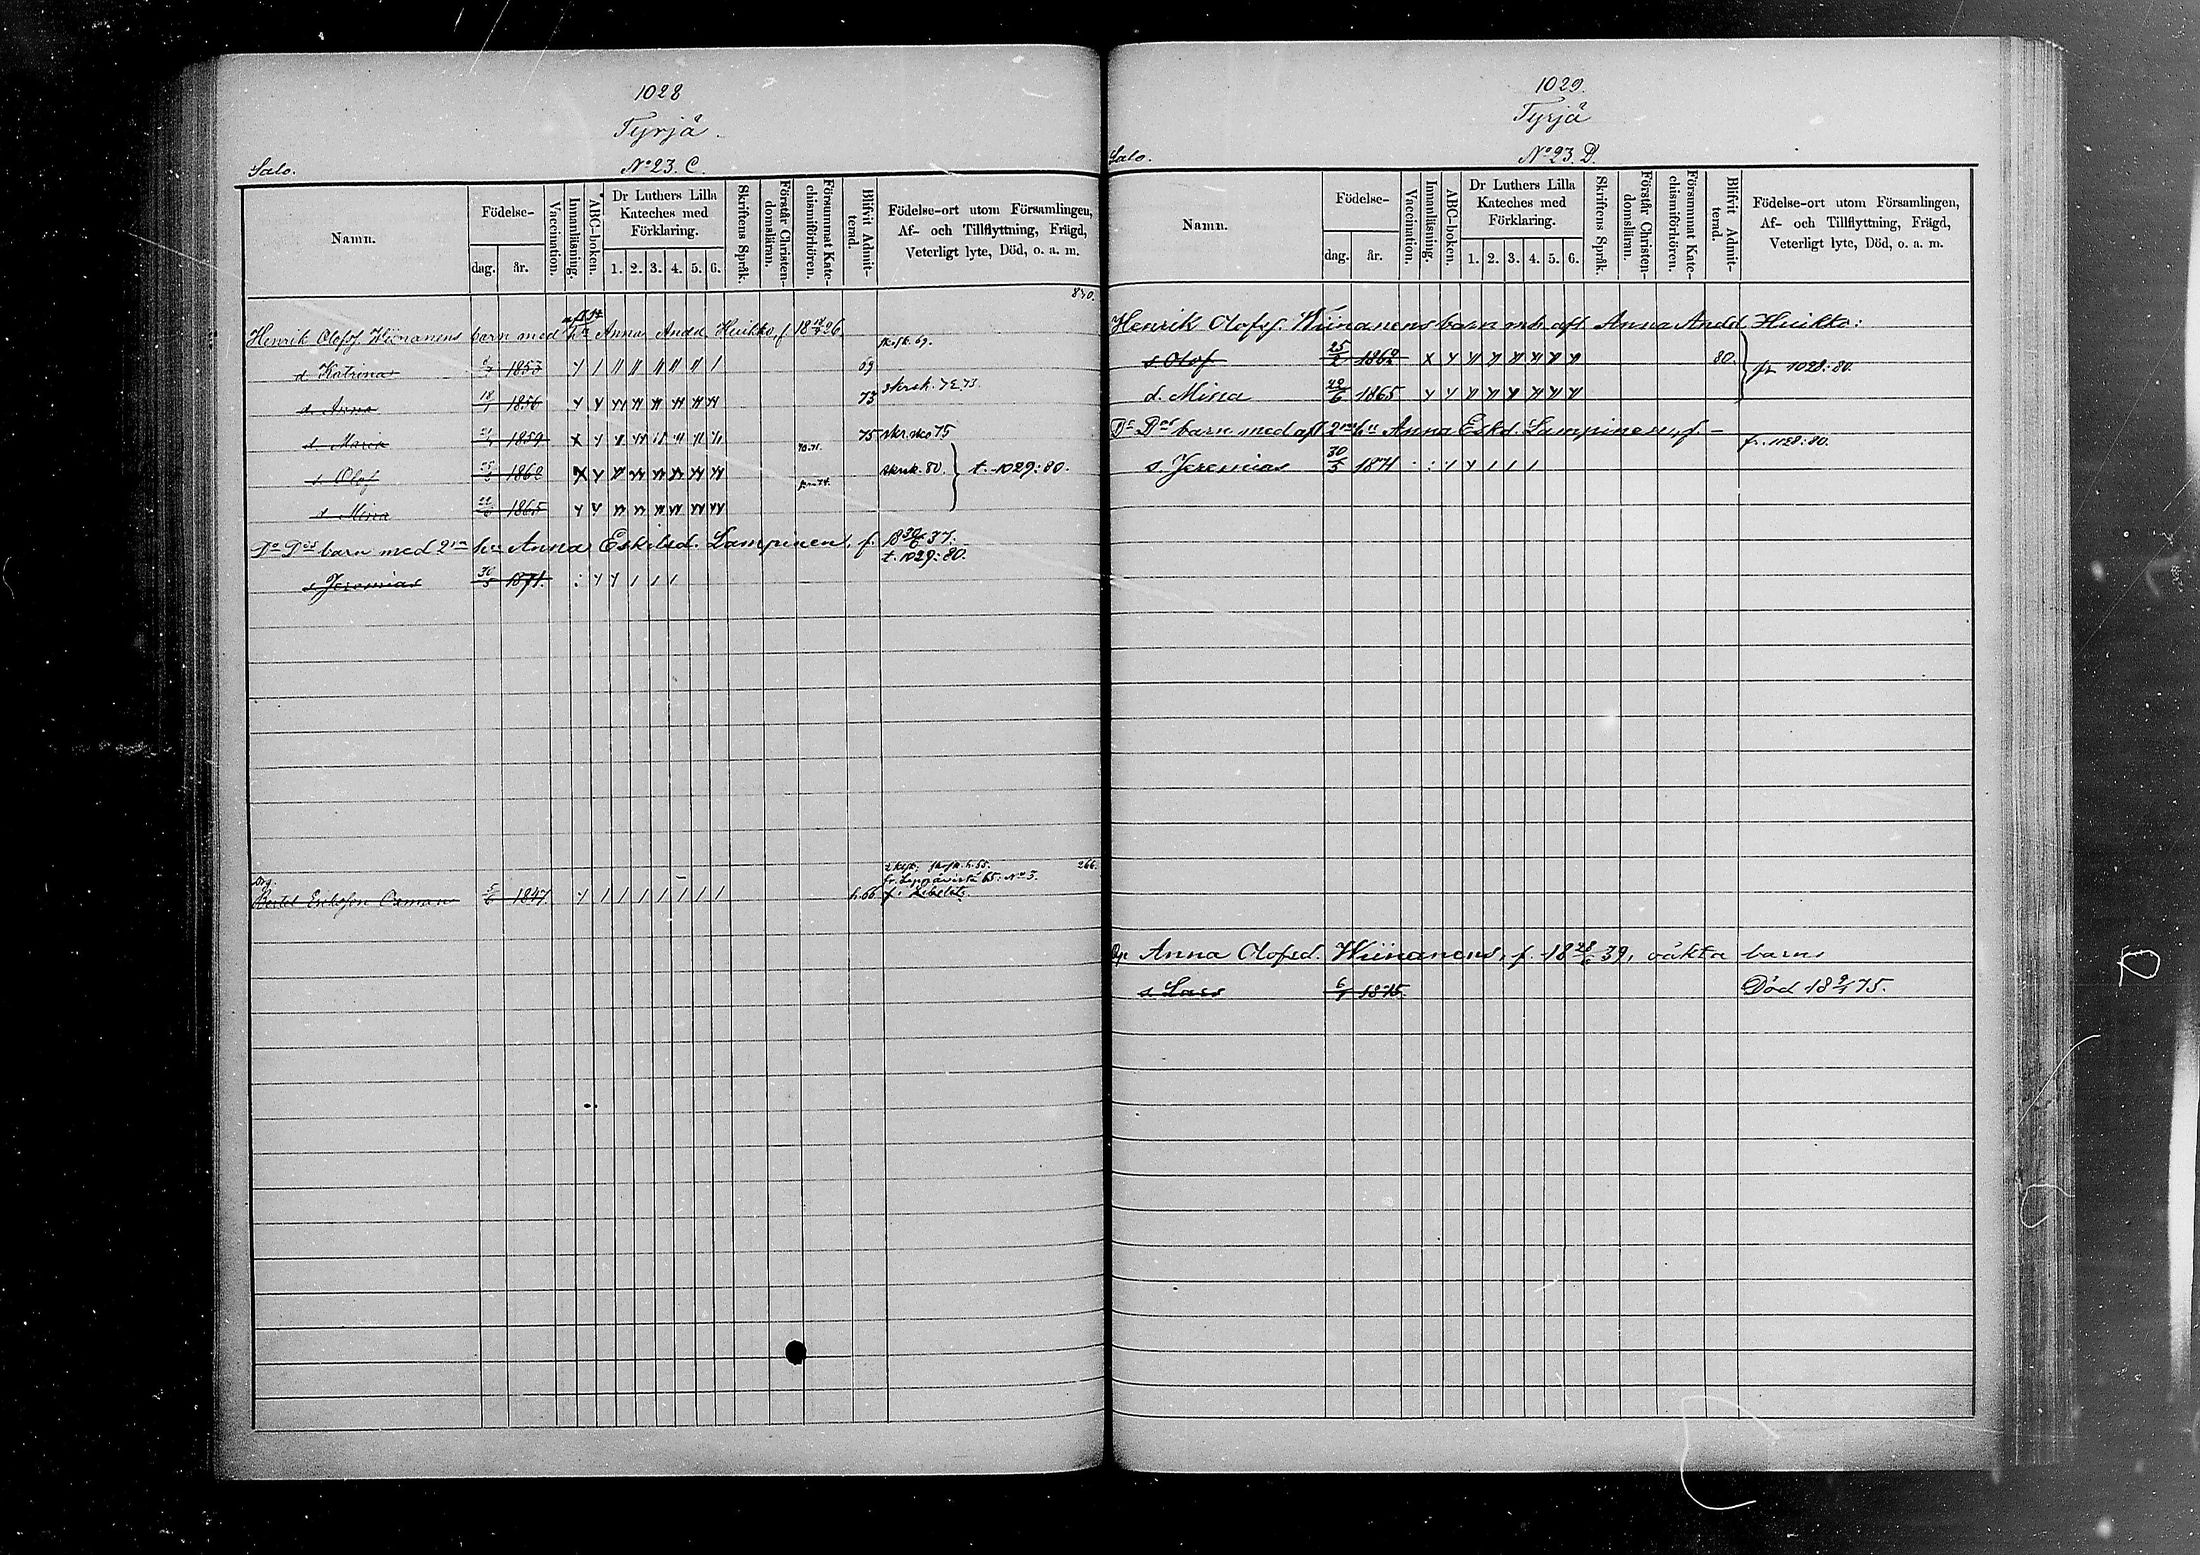 1028
Tyrjä.
Salo.
No 23. C.
Namn.
Födelse-
dag. år.
Vaccination.
Innanläsning.
ABC-boken.
Dr Luthers Lilla Kateches med Förklaring.
1. 2. 3. 4. 5. 6.
Skriftens Språk.
Förstår Christendomsläran.
Försummat Katechismiförhören.
Blifvit Admitterad.
Födelse-ort utom Församlingen,
Af- och Tillflyttning, Frägd,
Veterligt lyte, Död, o. a. m.
870.
Henrik Olofsf. Wiinanens barn med h:u Anna Andd. Huikko, f. 18 26.
sk. sk. 69.
d. Katrina 1853 69
d. Anna 18/1 1856 73 skrsk. 72 73.
d. Maria 1859 70.71. 75 skr. sko 75
s. Olof 25/2 1862 skrsk. 80. t. 1029:80.
d. Mina 22/6 1865
Do Dos barn med 2:n h:u Anna Eskilsd. Lampinen, f. 18 30/6 37.
t. 1029:80.
s. Jeremias 30/5 1871.
266.
fr. Leppävirta 65: No 3.
Drg.
Bertil Eriksson Oxman 5/6 1847. h. 66 f. i Libelits
1029.
Tyrjä
Salo.
No 23. D.
Namn.
Födelse-
dag. år.
Vaccination.
Innanläsning.
ABC-boken.
Dr Luthers Lilla Kateches med Förklaring.
1. 2. 3. 4. 5. 6.
Skriftens Språk.
Förstår Christendomsläran.
Försummat Katechismiförhören.
Blifvit Admitterad.
Födelse-ort utom Församlingen,
Af- och Tillflyttning, Frägd,
Veterligt lyte, Död, o. a. m.
Henrik Olofsf. Wiinanens barn m. afl. Anna Andd. Huikko:
s. Olof 25/2 1862 80. fr. 1028:80.
d. Mina 22/6 1865
Do Dos barn med afl. 2:n h:u Anna Eskd. Lampinen, f. –
fr. 1028:80.
s. Jeremias 30/5 1871
Anna Olofsd. Wiinanens, f. 18 28/6 39, oäkta barn
s. Lars 6/1 1875. Död 18 9/1 75.